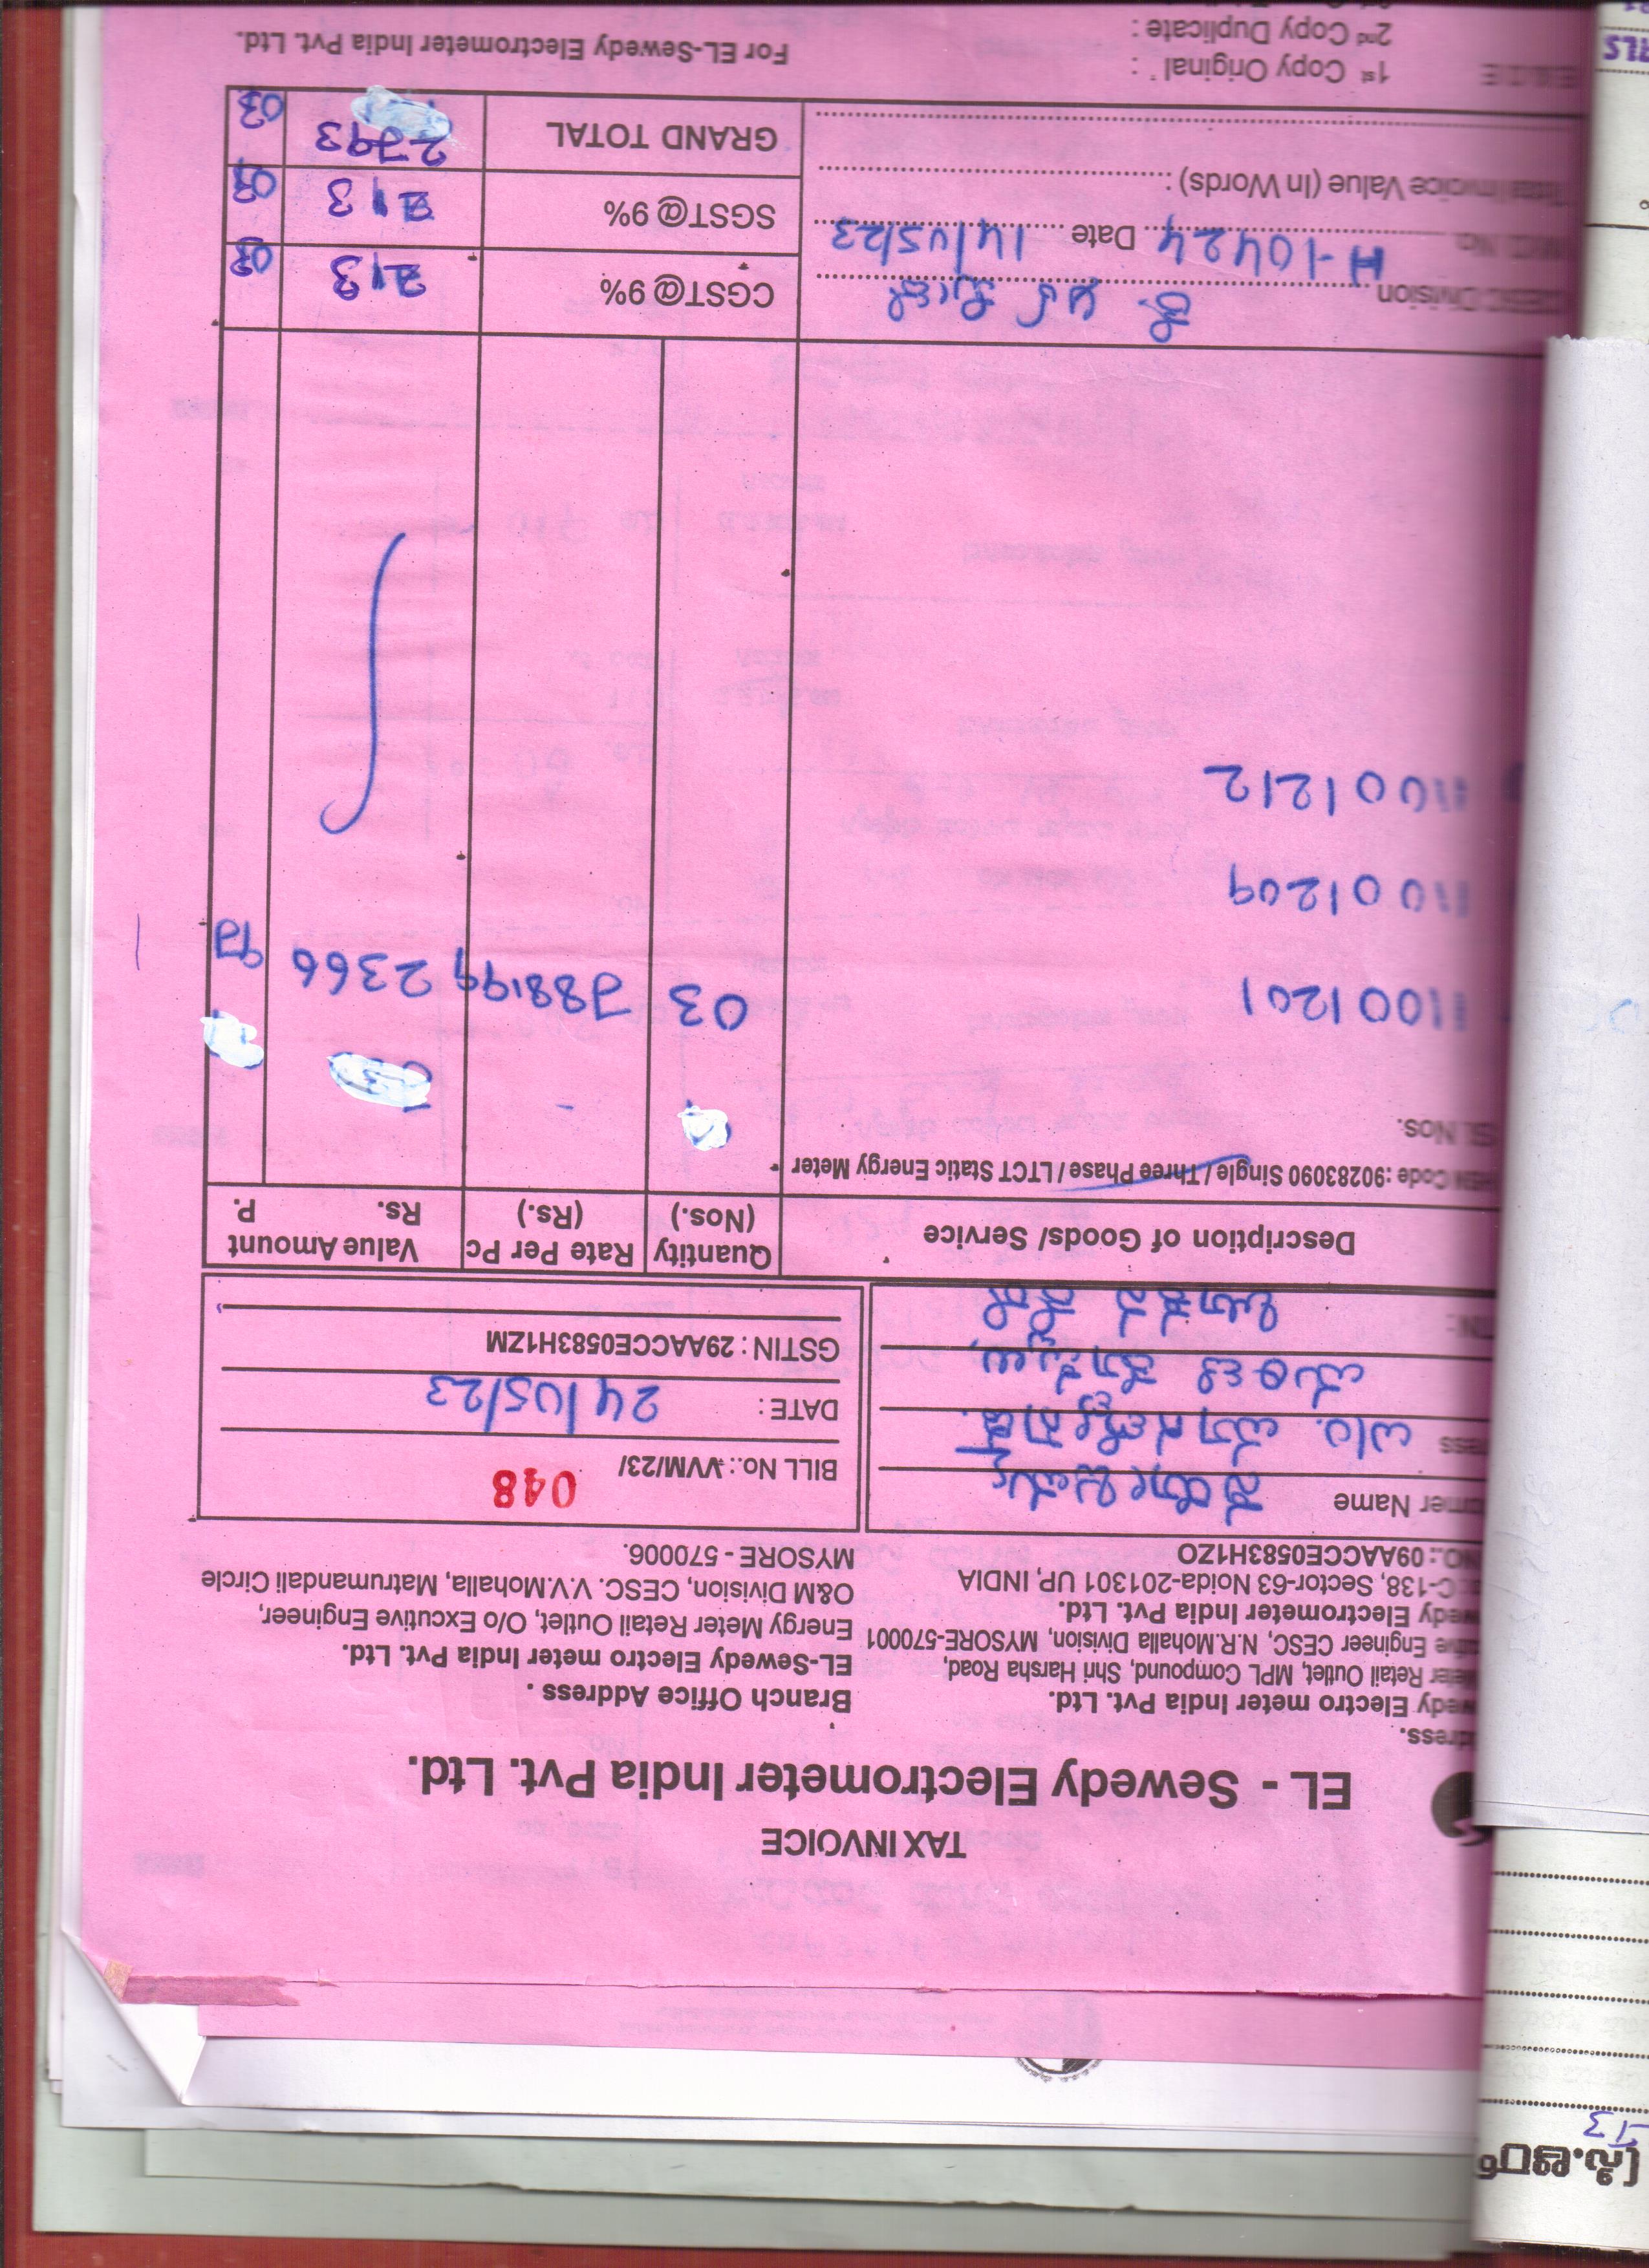 TAX INVOICE
EL - Sewedy Electrometer India Pvt. Ltd.
dress.
wedy Electro meter India Pvt. Ltd.
Meter Retail Outlet, MPL Compound, Shri Harsha Road,
tive Engineer CESC, N.R.Mohalla Division, MYSORE-570001
wedy Electrometer India Pvt. Ltd.
C-138, Sector-63 Noida-201301 UP, INDIA
NO.: 09AACCE0583H1ZO
Branch Office Address .
EL-Sewedy Electro meter India Pvt. Ltd.
Energy Meter Retail Outlet, O/o Excutive Engineer,
O&M Division, CESC. V.V.Mohalla, Matrumandali Circle
MYSORE - 570006.
omer Name
ress
TIN :
BILL No.: VVM/23/ 048
DATE : 24/05/23
GSTIN : 29AACCE0583H1ZM
Description of Goods/ Service
Quantity (Nos.)
Rate Per Pc (Rs.)
Value Amount
Rs. P.
HSN Code : 90283090 Single / Three Phase / LTCT Static Energy Meter
Sl. Nos.
11001201 03 788.99 2366 97
11001209
11001212
CESC Division
CGST@ 9% 213 03
H-10424 Date 14/05/23
SGST@ 9% 213 03
Total Invoice Value (In Words) :
GRAND TOTAL 2793 03
E.& O.E
1st Copy Original :
2nd Copy Duplicate :
For EL-Sewedy Electrometer India Pvt. Ltd.